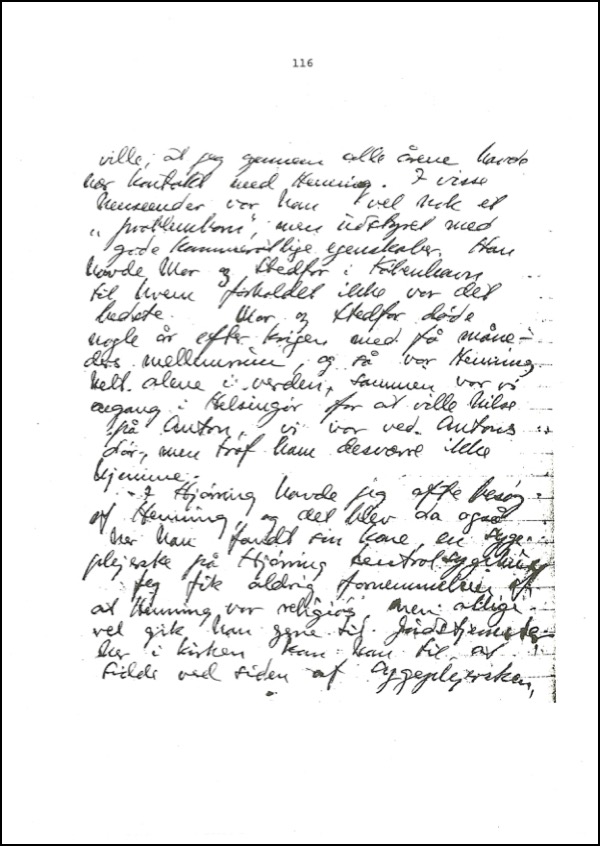 116
ville, at jeg gennem alle årene havde
nær kontakt med Henning. I visse
henseender var han vel nok et
"problembarn", men udstyret med
gode kammeratlige egenskaber. Han
havde Mor og Stedfar i København
til hvem forholdet ikke var det
bedste. Mor og Stedfar døde
nogle år efter krigen med få måne-
ders mellemrum, og så var Henning
helt alene i verden, sammen var vi
engang i Helsingør for at ville hilse
på Anton, vi var ved Antons
dør, men traf ham desværre ikke
hjemme.
I Hjørring havde jeg ofte besøg
af Henning, og det blev da også
her han fandt sin kone, en syge-
plejerske på Hjørring centralsygehus
Jeg fik aldrig fornemmelsen af
at Henning var religiøs, men allige-
vel gik han gerne til
her i kirken kan han til at
sidde ved siden af sygeplejersken,